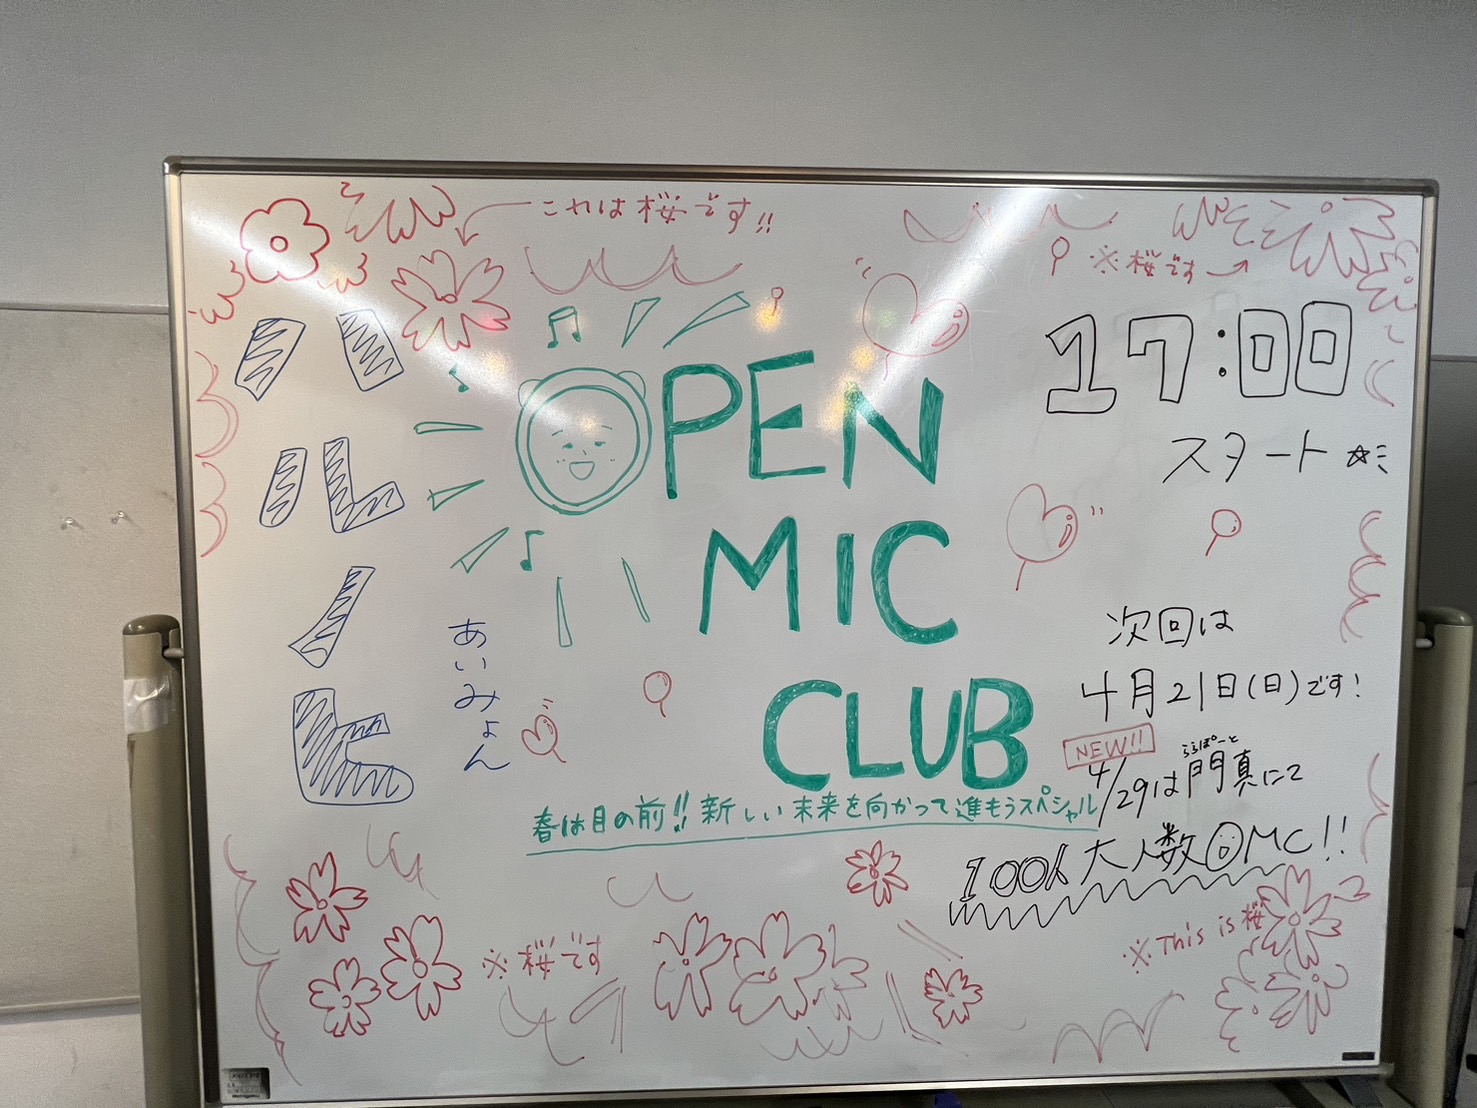 これは桜です!!
※桜です→
ハルノヒ
あいみょん
OPEN
MIC
CLUB
17:00
スタート☆ミ
次回は
4月21日(日)です!
NEW!!
ららぽーと
4/29は門真にて
100人大人数OMC!!
春は目の前!!新しい未来を向かって進もうスペシャル
※桜です
※This is 桜